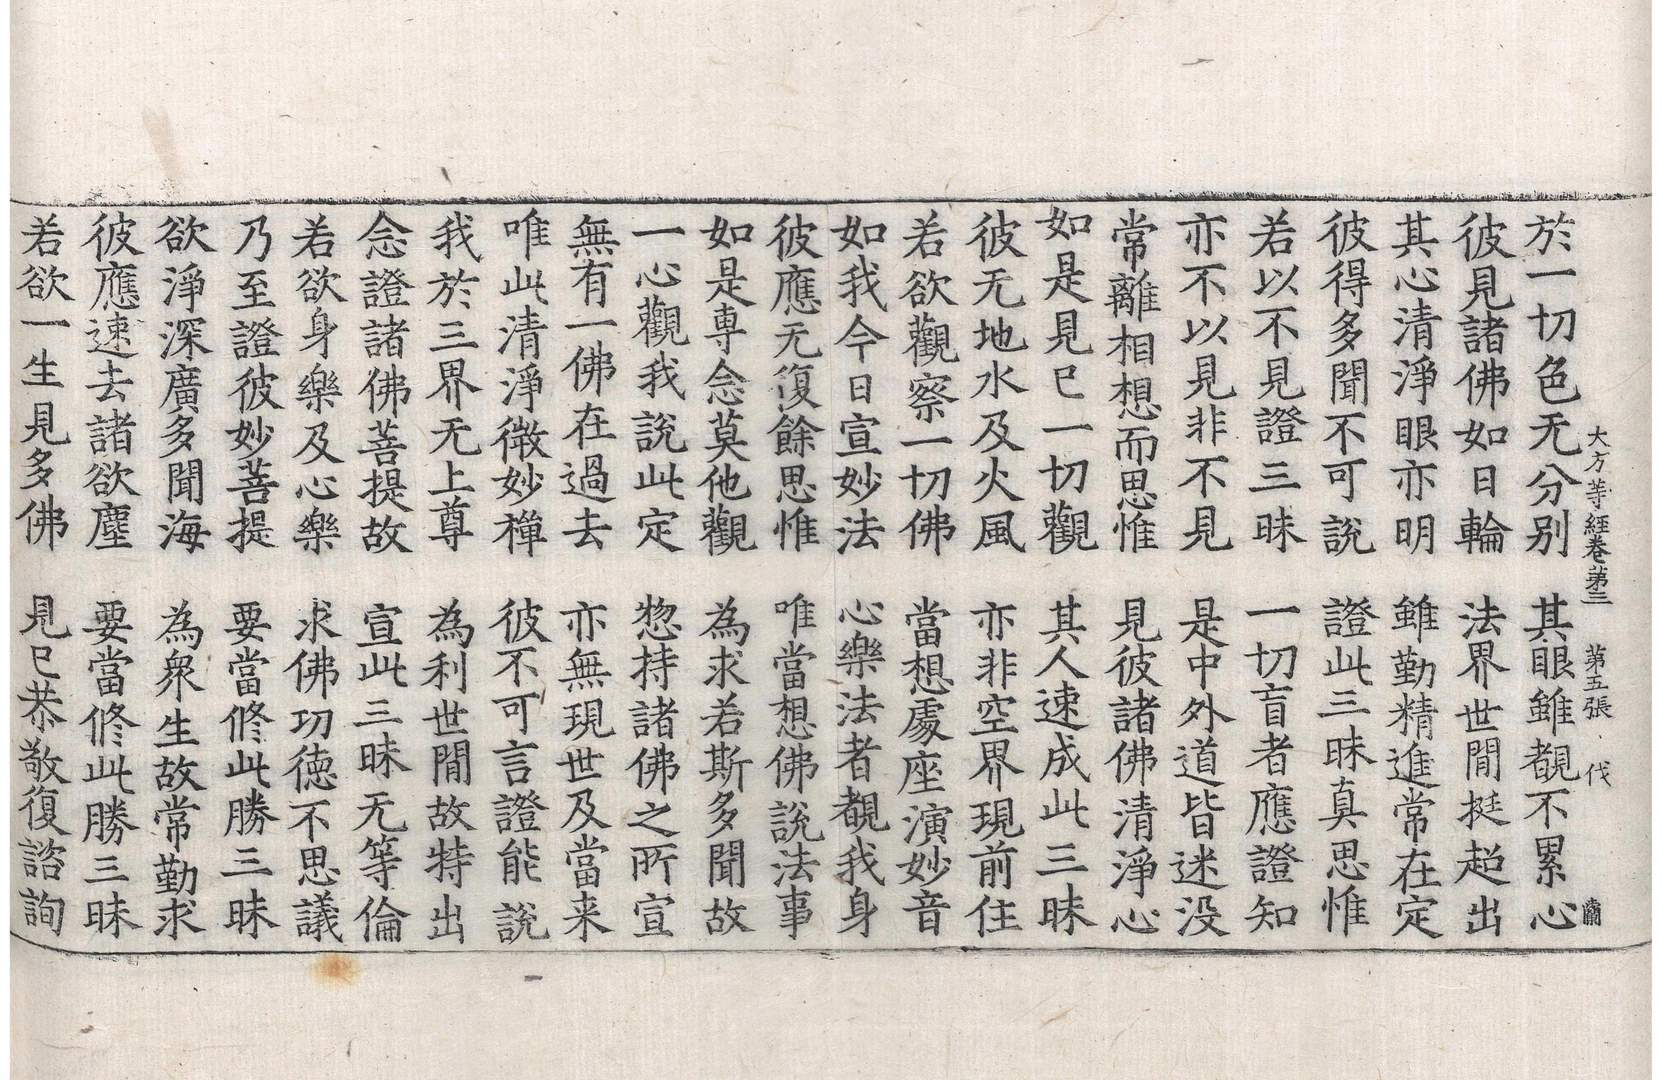 大方等經卷第三 第五張 代
於一切色无分别 其眼雖覩不累心
彼見諸佛如日輪 法界世間挺超出
其心清淨眼亦明 雖勤精進常在定
彼得多聞不可說 證此三昧真思惟
若以不見證三昧 一切盲者應證知
亦不以見非不見 是中外道皆迷没
常離相想而思惟 見彼諸佛清淨心
如是見已一切觀 其人速成此三昧
彼无地水及火風 亦非空界現前住
若欲觀察一切佛 當想處座演妙音
如我今日宣妙法 心樂法者覩我身
彼應无復餘思惟 唯當想佛說法事
如是專念莫他觀 為求若斯多聞故
一心觀我說此定 惣持諸佛之所宣
無有一佛在過去 亦無現世及當来
唯此清淨微妙禪 彼不可言證能說
我於三界无上尊 為利世間故特出
念證諸佛菩提故 宣此三昧无等倫
若欲身樂及心樂 求佛㓛德不思議
乃至證彼妙菩提 要當修此勝三昧
欲淨深廣多聞海 為衆生故常勤求
彼應速去諸欲塵 要當修此勝三昧
若欲一生見多佛 見已恭敬復諮詢